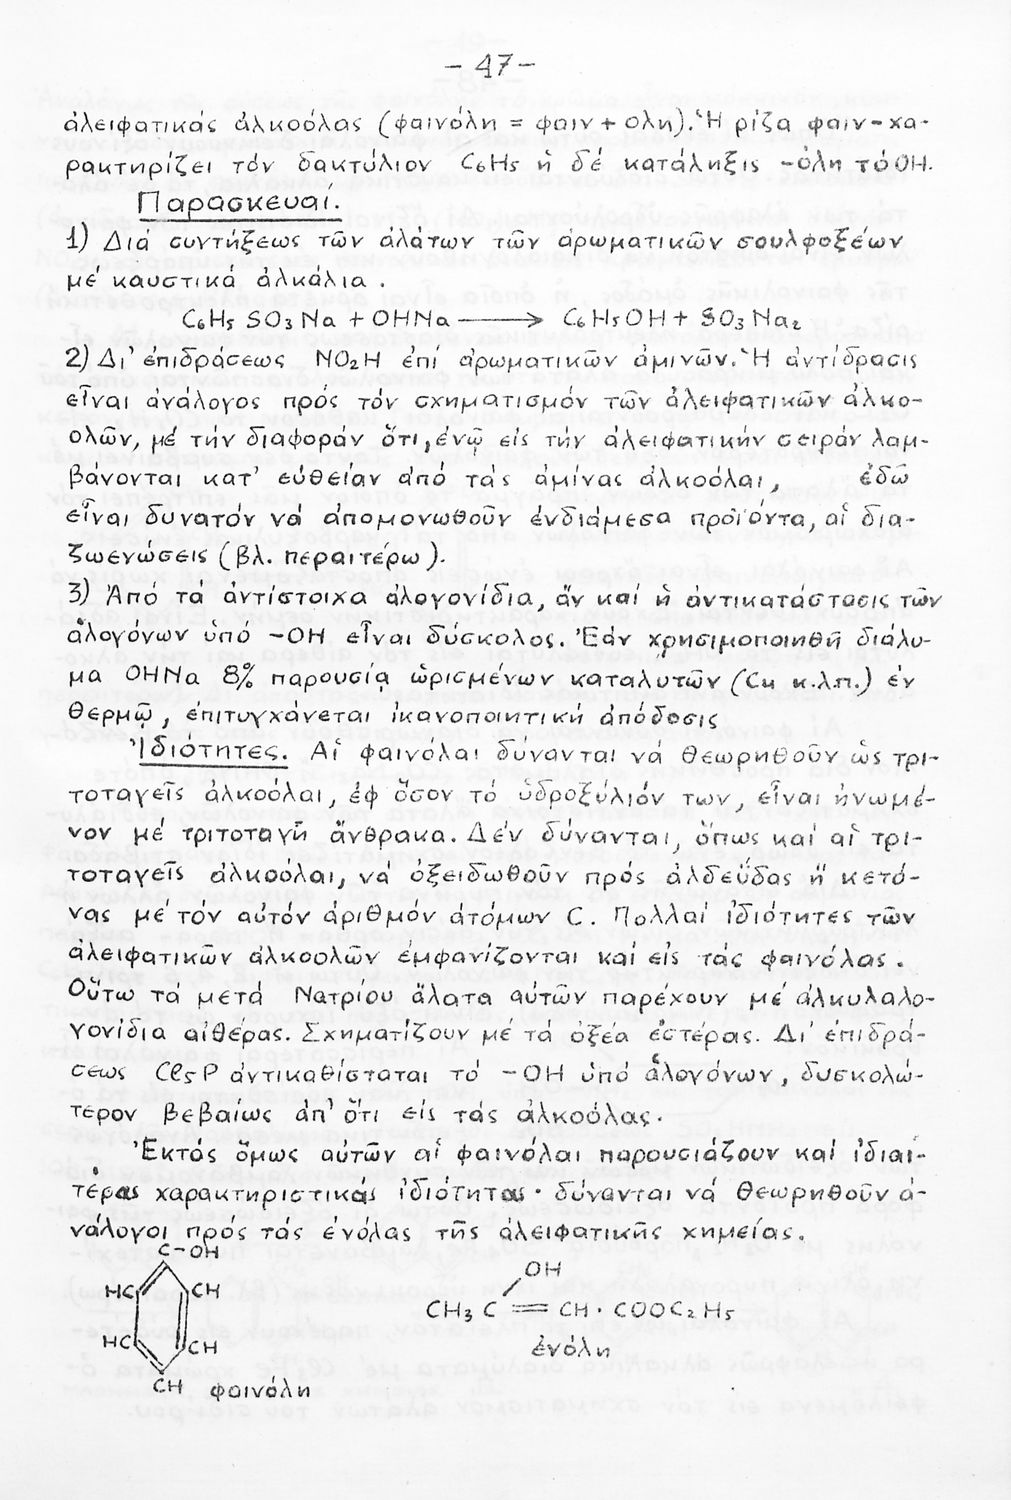 - 47 -
ἀλειφατικάς ἀλκοόλας (φαινόλη = φαιν + ολη). Ἡ ρίζα φαιν - χα-
ρακτηρίζει τόν δακτύλιον C₆H₅ ἡ δέ κατάληξις -όλη τό OH.
Παρασκευαί.
1) Διά συντήξεως τῶν ἁλάτων τῶν ἀρωματικῶν σουλφοξέων
μέ καυστικά ἀλκάλια.
C₆H₅ SO₃ Na + OHNa ⟶ C₆H₅OH + SO₃Na₂
2) Δι' ἐπιδράσεως NO₂H ἐπί ἀρωματικῶν ἀμινῶν. Ἡ ἀντίδρασις
εἶναι ἀνάλογος πρός τόν σχηματισμόν τῶν ἀλειφατικῶν ἀλκο-
ολῶν, μέ τήν διαφοράν ὅτι, ἐνῷ εἰς τήν ἀλειφατικήν σειράν λαμ-
βάνονται κατ' εὐθείαν ἀπό τάς ἀμίνας ἀλκοόλαι, ἐδῶ
εἶναι δυνατόν νά ἀπομονωθοῦν ἐνδιάμεσα προϊόντα, αἱ δια-
ζωενώσεις (βλ. περαιτέρω).
3) Ἀπό τά ἀντίστοιχα ἁλογονίδια, ἄν καί ἡ ἀντικατάστασις τῶν
ἁλογόνων ὑπό -OH εἶναι δύσκολος. Ἐάν χρησιμοποιηθῆ διάλυ-
μα OHNa 8% παρουσίᾳ ὡρισμένων καταλυτῶν (Cu κ.λ.π.) ἐν
θερμῷ, ἐπιτυγχάνεται ἱκανοποιητική ἀπόδοσις
Ἰδιότητες. Αἱ φαινόλαι δύνανται νά θεωρηθοῦν ὡς τρι-
τοταγεῖς ἀλκοόλαι, ἐφ ὅσον τό ὑδροξύλιόν των, εἶναι ἡνωμέ-
νον μέ τριτοταγῆ ἄνθρακα. Δέν δύνανται, ὅπως καί αἱ τρι-
τοταγεῖς ἀλκοόλαι, νά ὀξειδωθοῦν πρός ἀλδεΰδας ἤ κετό-
νας μέ τόν αὐτόν ἀριθμόν ἀτόμων C. Πολλαί ἰδιότητες τῶν
ἀλειφατικῶν ἀλκοολῶν ἐμφανίζονται καί εἰς τάς φαινόλας.
Οὕτω τά μετά Νατρίου ἅλατα αὐτῶν παρέχουν μέ ἀλκυλαλο-
γονίδια αἰθέρας. Σχηματίζουν μέ τά ὀξέα ἐστέρας. Δι' ἐπιδρά-
σεως Cl₅P ἀντικαθίσταται τό -OH ὑπό ἁλογόνων, δυσκολώ-
τερον βεβαίως ἀπ' ὅτι εἰς τάς ἀλκοόλας.
Ἐκτός ὅμως αὐτῶν αἱ φαινόλαι παρουσιάζουν καί ἰδιαι-
τέρας χαρακτηριστικάς ἰδιότητας· δύνανται νά θεωρηθοῦν ἀ-
νάλογοι πρός τάς ἐνόλας τῆς ἀλειφατικῆς χημείας.
C-OH
HC CH
HC CH
CH φαινόλη
OH
CH₃ C = CH · COOC₂H₅
ἐνόλη